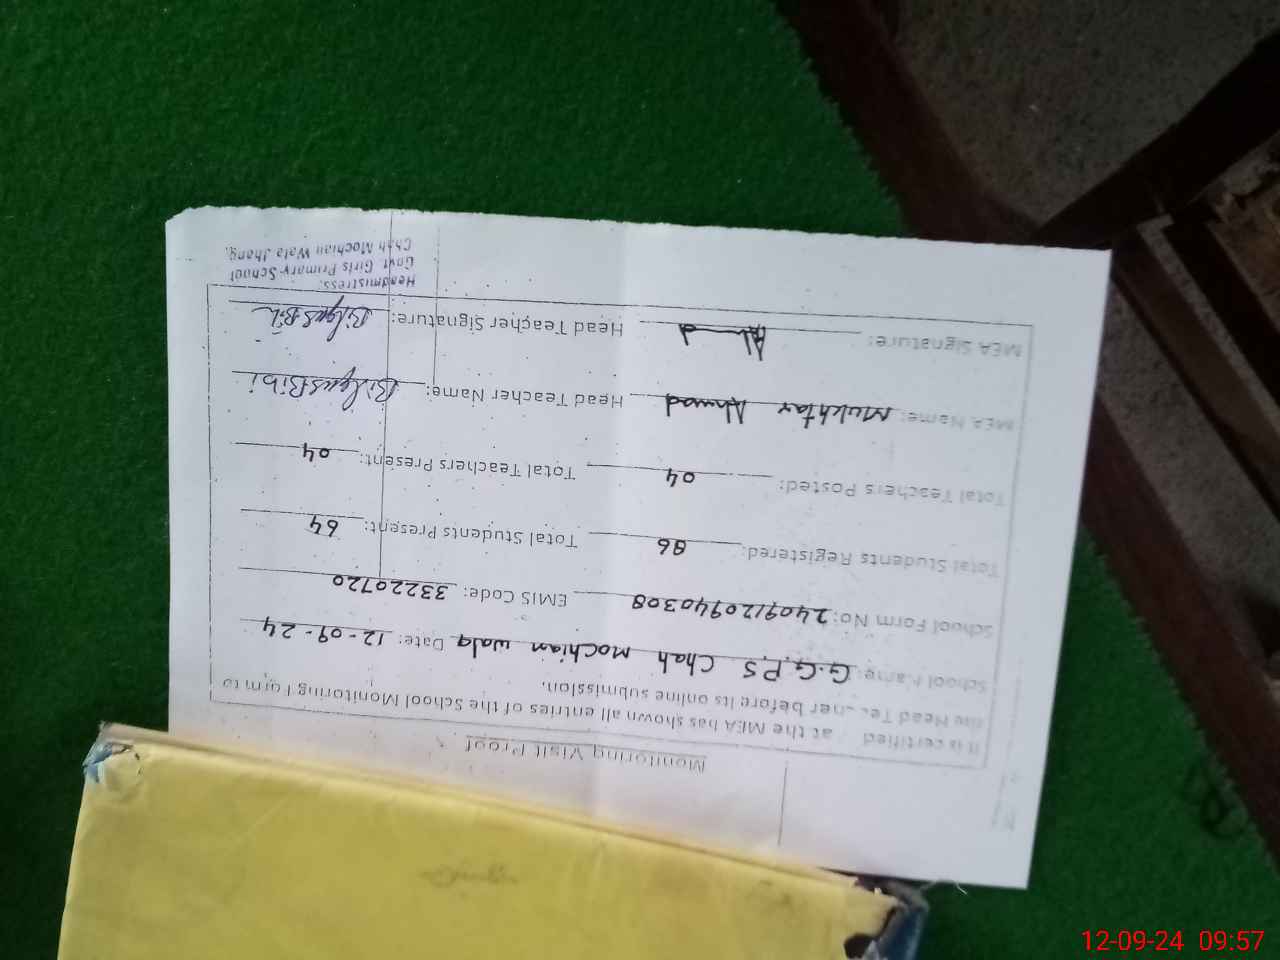 Monitoring Visit Proof
It is certified at the MEA has shown all entries of the School Monitoring Form to
the Head Teacher before its online submission.
School Name: G.G.P.S Chah mochian wala Date: 12-09-24
School Form No: 2409120940308 EMIS Code: 33220720
Total Students Registered: 86 Total Students Present: 64
Total Teachers Posted: 04 Total Teachers Present: 04
MEA Name: Mukhtar Ahmad Head Teacher Name: Bilqus Bibi
MEA Signature: Ahmad Head Teacher Signature: Bilqus Bibi
Headmistress.
Govt. Girls Primary School
Chah Mochian Wala Jhang.
12-09-24 09:57